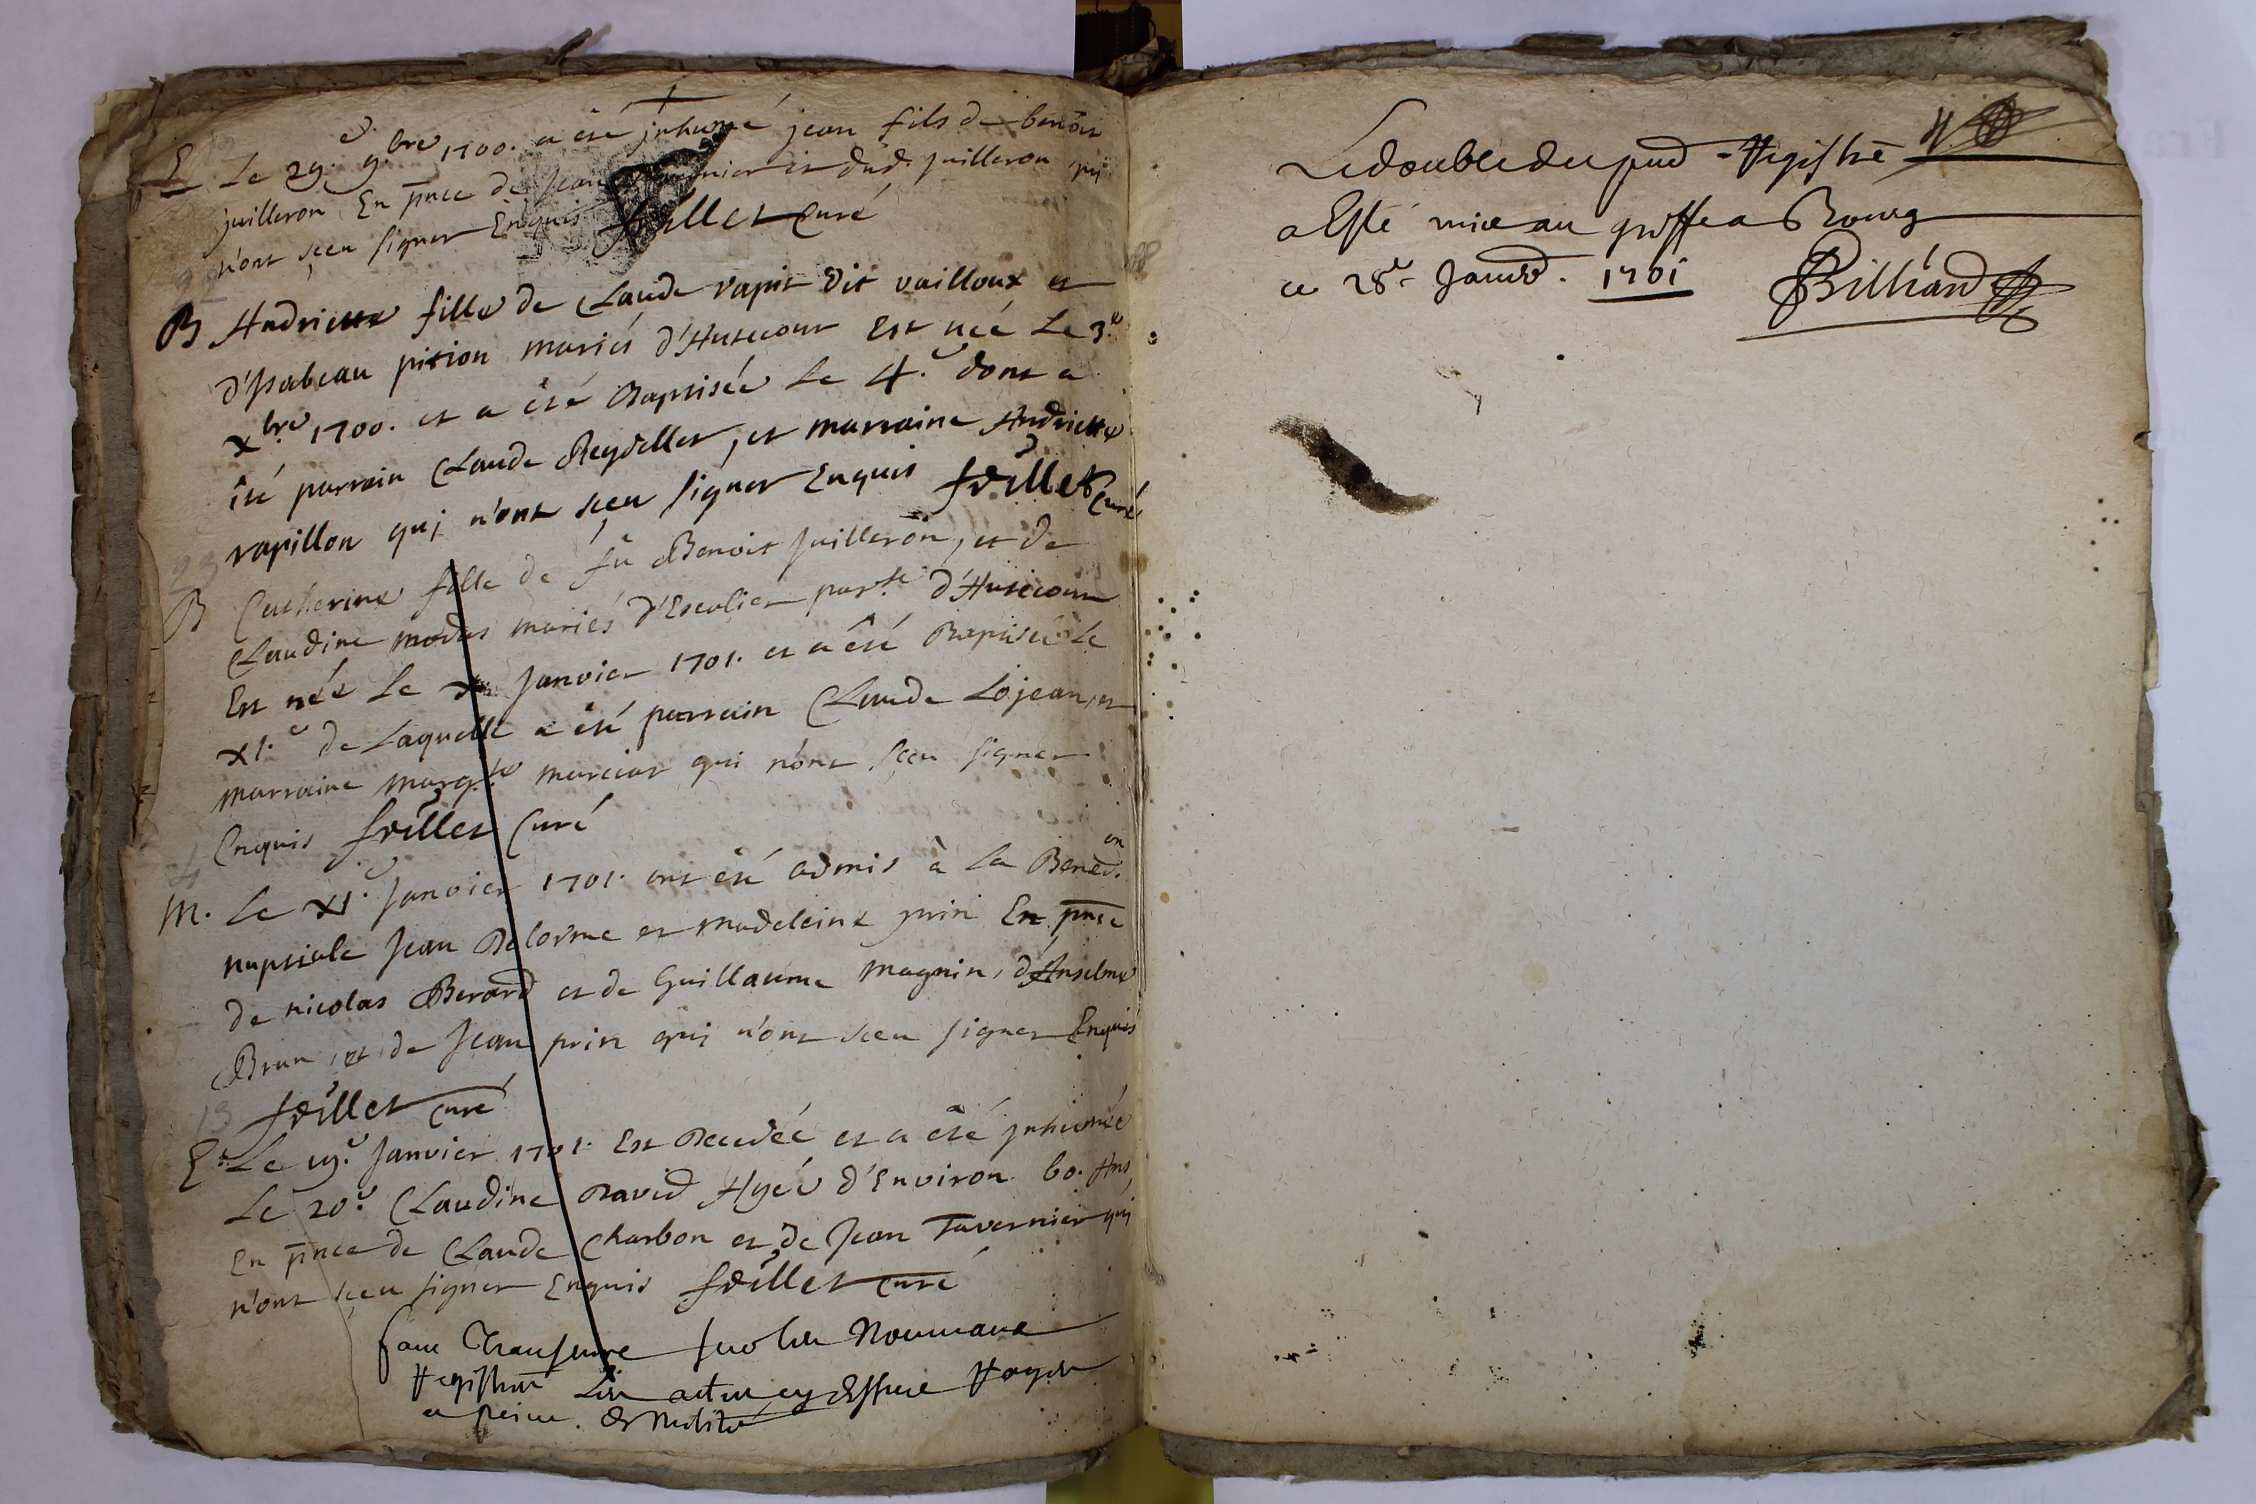 E Le 29.e 9.bre 1700. a été jnhumé jean fils de benoit
juilleron En pnce de Jean et dud. juilleron qui
n'ont sçeu signer Enquis feillet Curé
B Andriette fille de Claude rapit dit vailloux et
d'Jsabeau pition mariés d'Autecour Est née Le 3.e
xbre 1700. et a été Baptisée Le 4.e dont a
été parrain Claude Reydellet, et marraine Andriette
rapillon quj n'ont sçeu signer Enquis feillet Curé
B Catherine fille de fû Benoit Juilleron, et de
Claudine modas mariés d'Escolier par.se d'Autecour
Est née Le x Janvier 1701. et a été Baptisée Le
x1.e de Laquelle a été parrain Claude Lojean, et
marraine marg.te marciat qui n'ont sçeu signer
Enquis feillet Curé
M. Le x1.e Janvier 1701. ont été admis à La Bened.on
nuptiale Jean Delorme et madeleine prin En pnce
de nicolas Berard et de Guillaume magnin, d'Anselme
Brun, et de Jean prin quj n'ont sceu signer Enquis
feillet curé
E. Le 19.e Janvier 1701. Est Decedée et a été jnhumée
Le 20.e Claudine David Agée d'Environ 60. Ans,
En pnce de Claude Charbon et de Jean Tavernier quj
n'ont sçeu signer Enquis feillet curé
sur Nouveau
Registre
a peine de Nullité
Le double du pnd Registre
a Esté mis au greffe a Bourg
ce 28e Janvr. 1701 Billiard